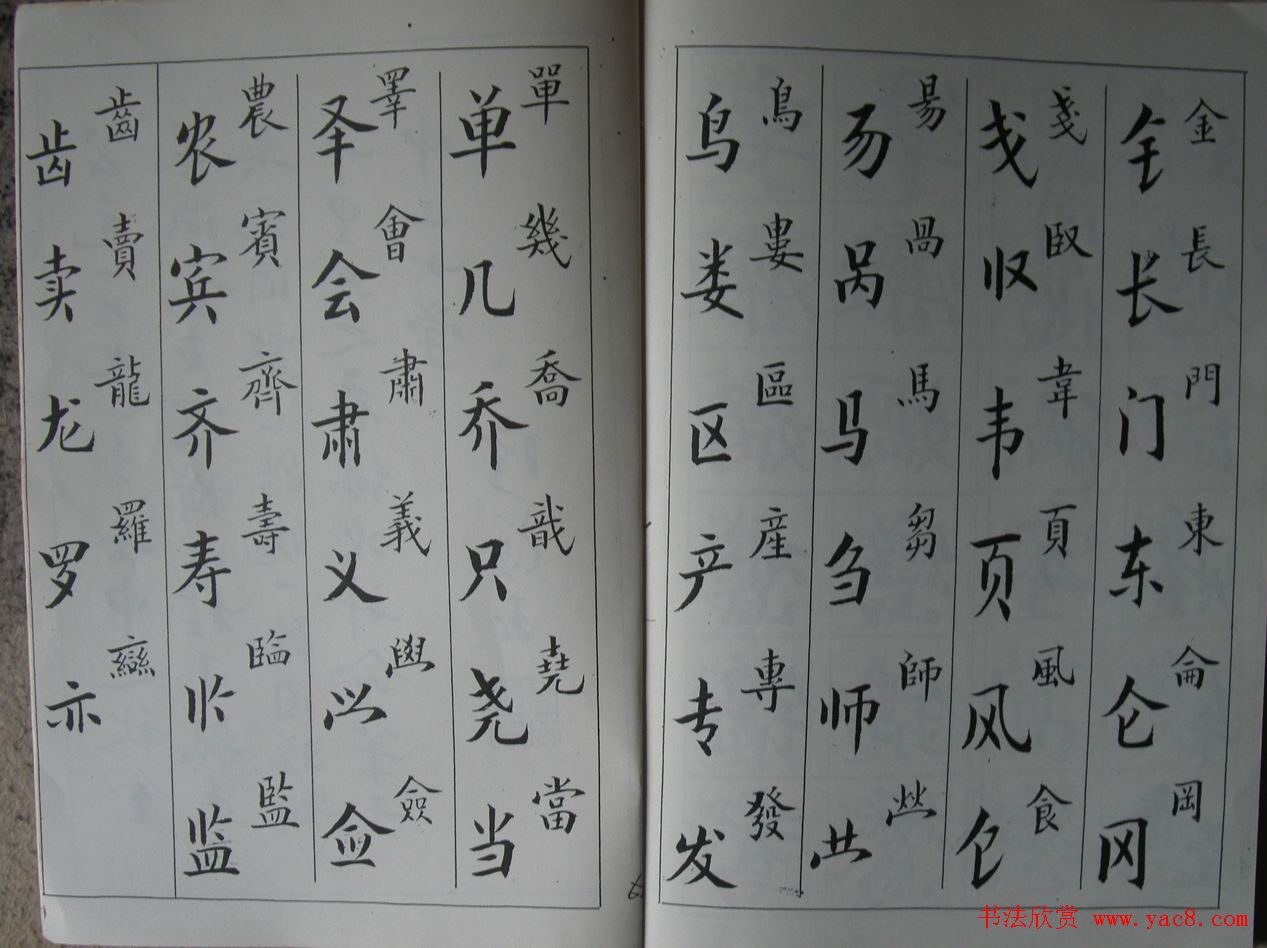 金長門東侖岡
钅长门东仑冈
戔臤韋頁風食
戋韦页风饣
昜咼馬芻師
𠃓呙马刍师
鳥婁區産專發
鸟娄区产专发
單幾喬戠堯當
单几乔只尧当
睪會肅義僉
𠬤会肃义佥
農賓齊壽監
农宾齐寿监
齒賣龍羅䜌
齿卖龙罗亦
书法欣赏 www.yac8.com